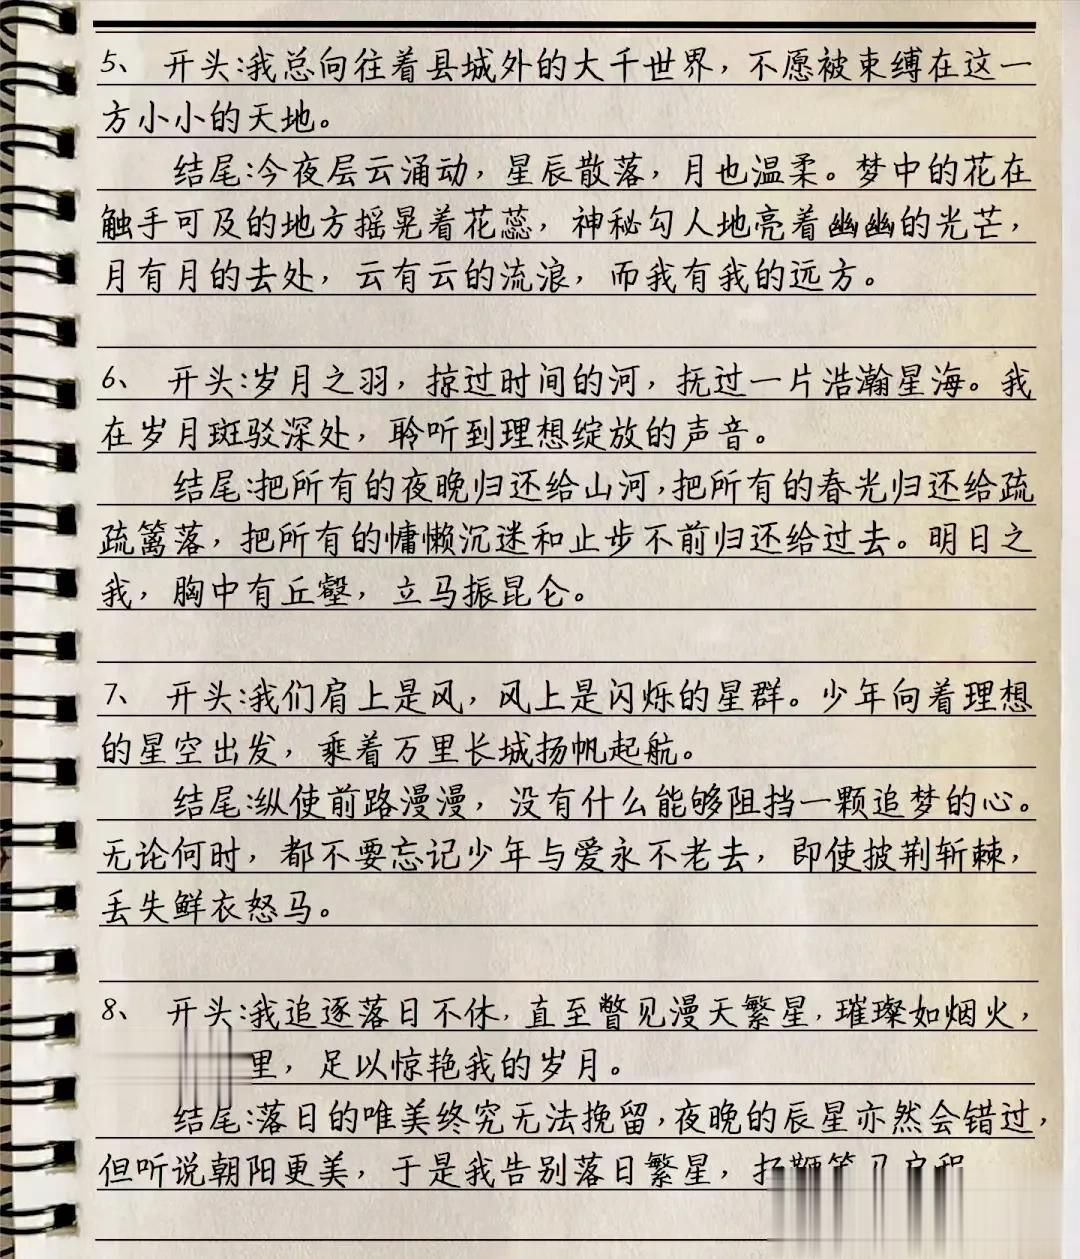 5、 开头:我总向往着县城外的大千世界，不愿被束缚在这一
方小小的天地。
结尾:今夜层云涌动，星辰散落，月也温柔。梦中的花在
触手可及的地方摇晃着花蕊，神秘勾人地亮着幽幽的光芒，
月有月的去处，云有云的流浪，而我有我的远方。
6、 开头:岁月之羽，掠过时间的河，抚过一片浩瀚星海。我
在岁月斑驳深处，聆听到理想绽放的声音。
结尾:把所有的夜晚归还给山河,把所有的春光归还给疏
疏篱落，把所有的慵懒沉迷和止步不前归还给过去。明日之
我，胸中有丘壑，立马振昆仑。
7、 开头:我们肩上是风，风上是闪烁的星群。少年向着理想
的星空出发，乘着万里长城扬帆起航。
结尾:纵使前路漫漫，没有什么能够阻挡一颗追梦的心。
无论何时，都不要忘记少年与爱永不老去，即使披荆斩棘，
丢失鲜衣怒马。
8、 开头:我追逐落日不休，直至瞥见漫天繁星，璀璨如烟火，
里，足以惊艳我的岁月。
结尾:落日的唯美终究无法挽留,夜晚的辰星亦然会错过，
但听说朝阳更美，于是我告别落日繁星，